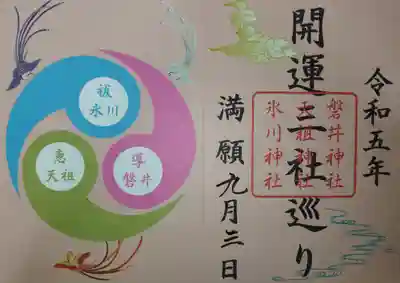 令和五年
開運三社巡り
磐井神社
天祖神社
氷川神社
満願九月三日
祓
氷川
導
磐井
恵
天祖